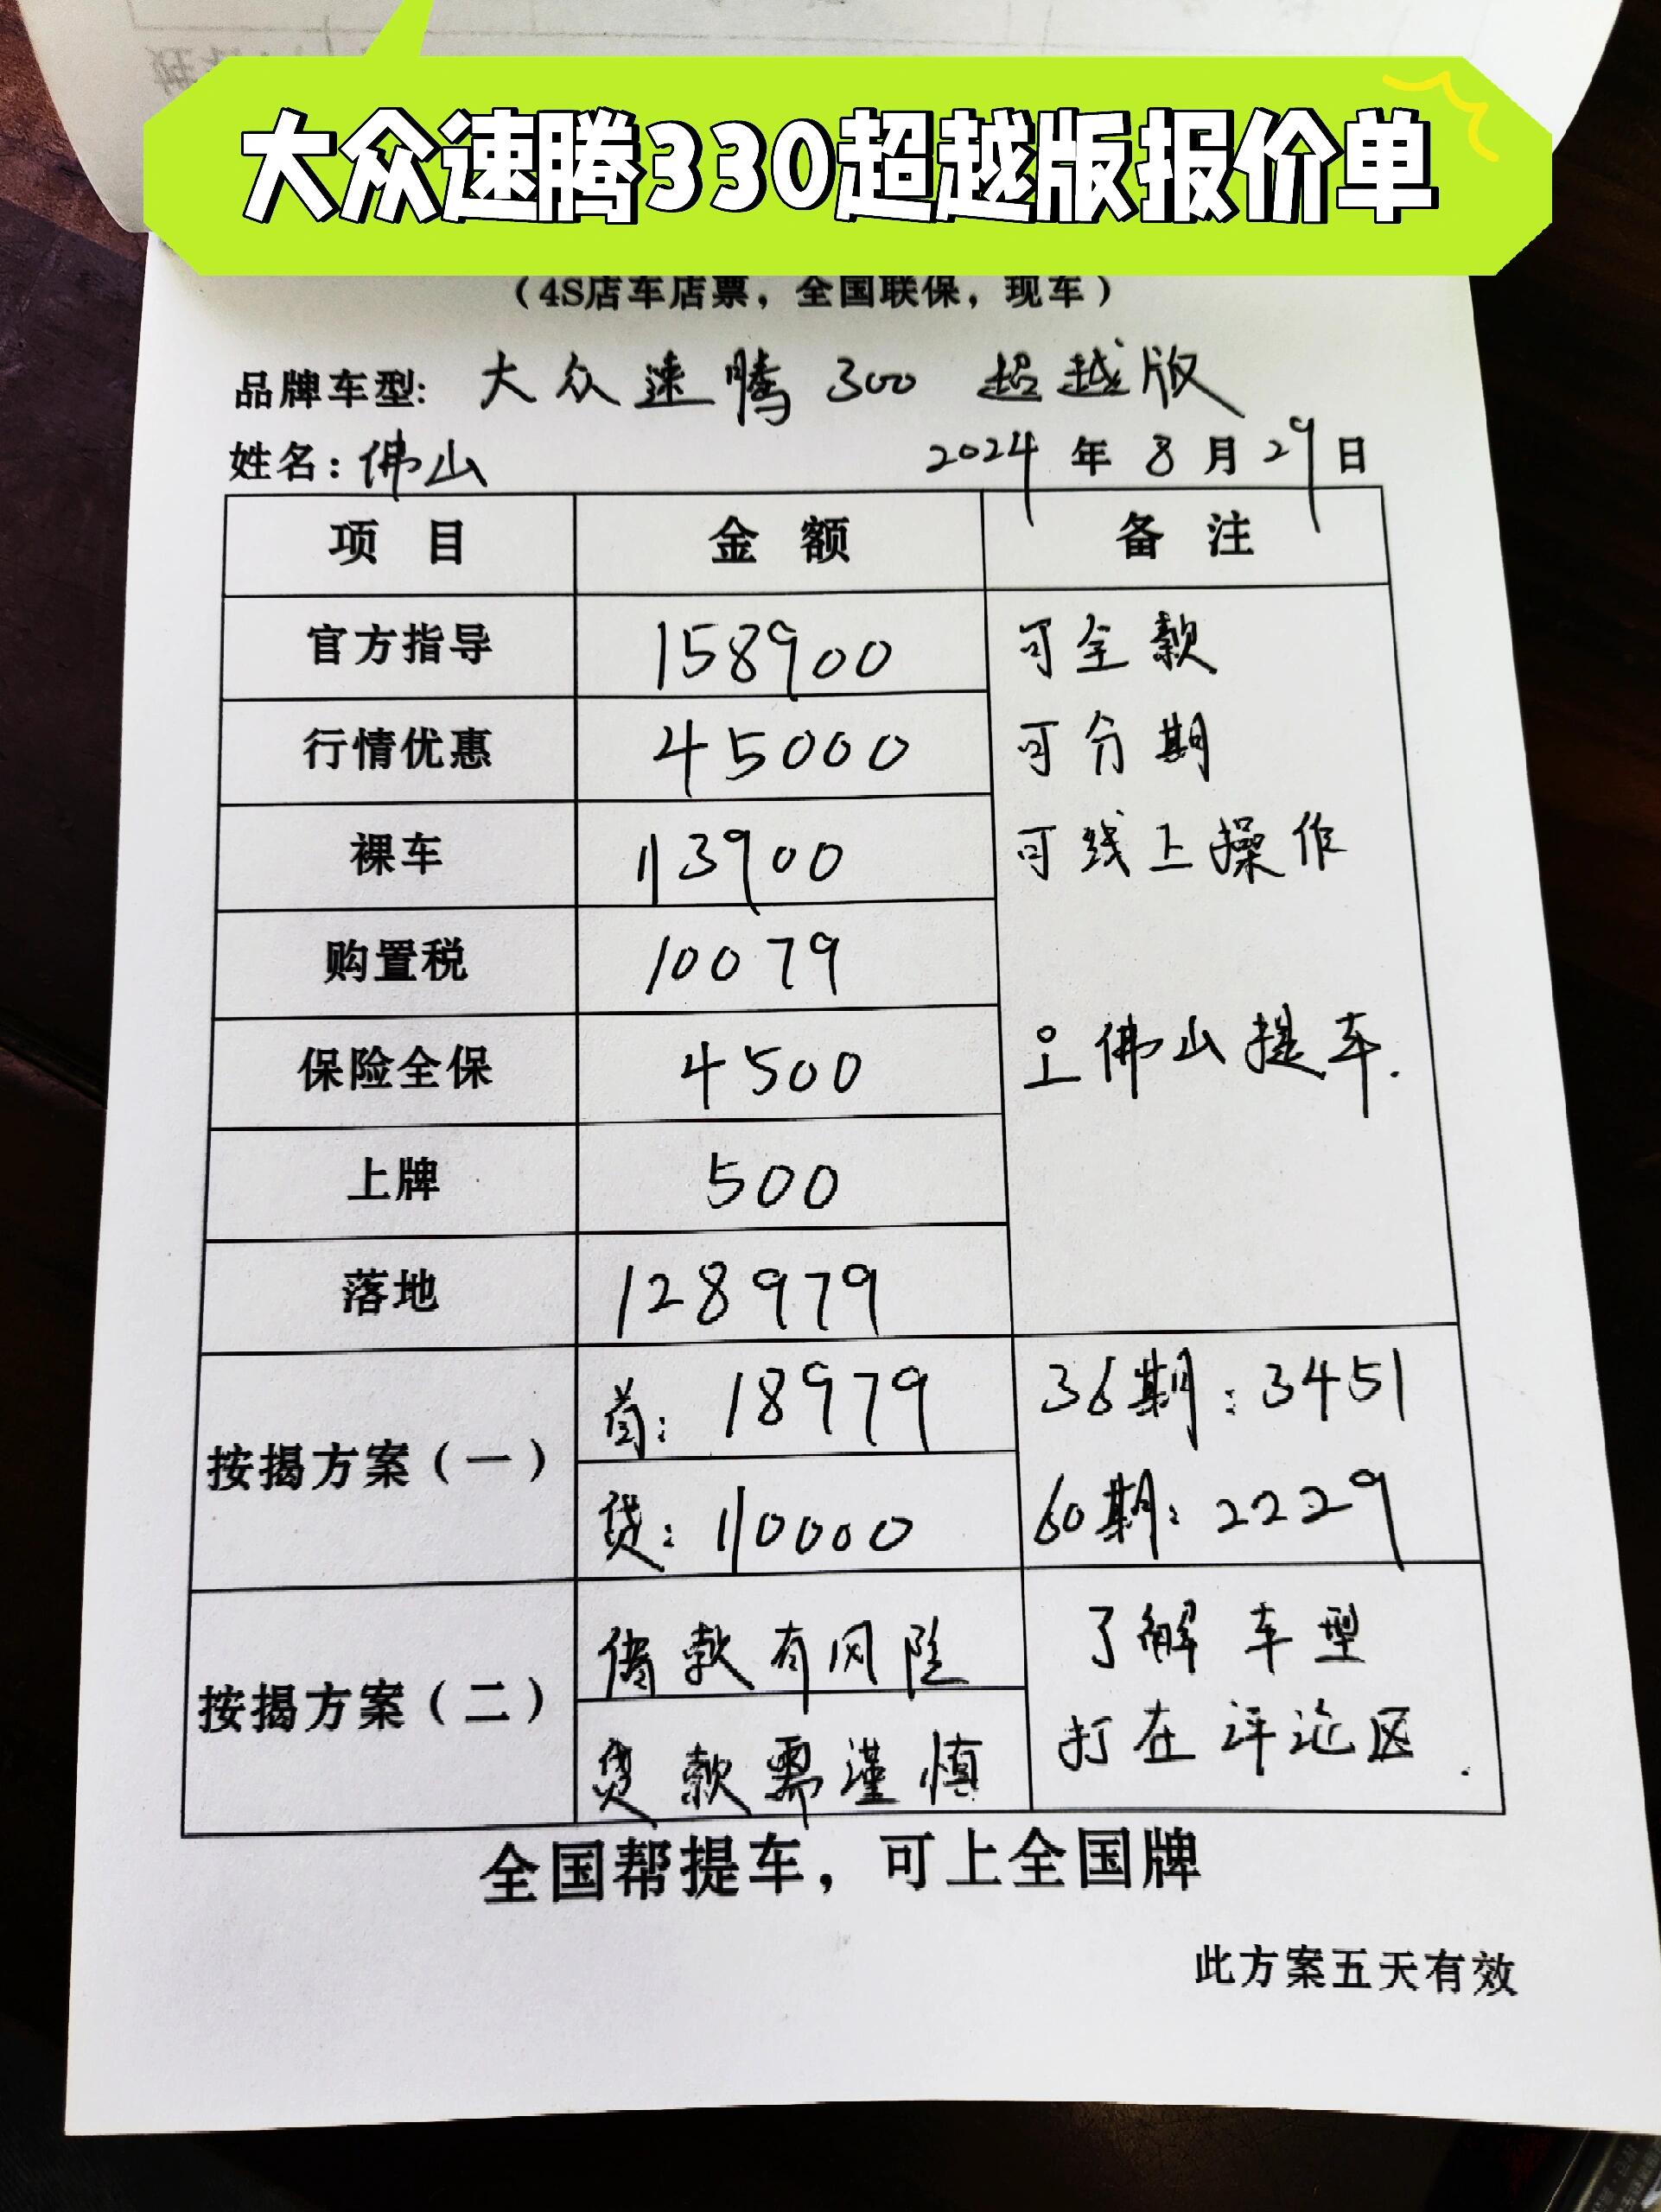 大众速腾330超越版报价单
（4S店车店票，全国联保，现车）
品牌车型: 大众速腾 300 超越版
姓名: 佛山 2024 年 8 月 29 日
项 目 金 额 备 注
官方指导 158900 可全款
行情优惠 45000 可分期
裸车 113900 可线上操作
购置税 10079
保险全保 4500 佛山提车.
上牌 500
落地 128979
按揭方案（一） 首: 18979 36期: 3451
贷: 110000 60期: 2229
按揭方案（二） 借款有风险 了解车型
贷款需谨慎 打在评论区.
全国帮提车，可上全国牌
此方案五天有效